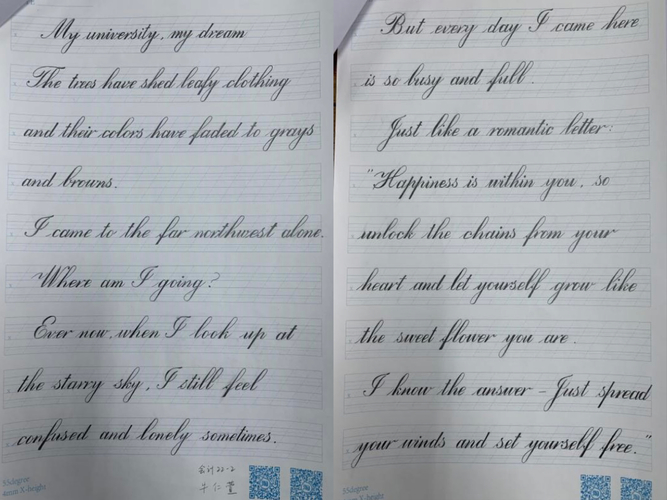 My university, my dream
The trees have shed leafy clothing
and their colors have faded to grays
and browns.
I came to the far northwest alone.
Where am I going?
Ever now, when I look up at
the starry sky, I still feel
confused and lonely sometimes.
会计22-2
牛仁萱
55degree
4mm X-height
But every day I came here
is so busy and full.
Just like a romantic letter:
"Happiness is within you, so
unlock the chains from your
heart and let yourself grow like
the sweet flower you are.
I know the answer - Just spread
your winds and set yourself free."
55degree
4mm X-height